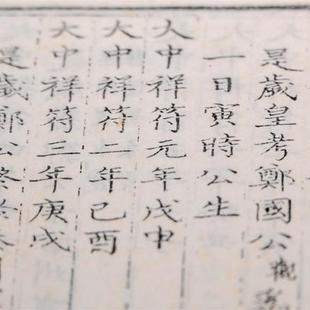 是歲皇考鄭國公觀
一日寅時公生
大中祥符元年戊申
大中祥符二年己酉
大中祥符三年庚戌
是歲鄭公